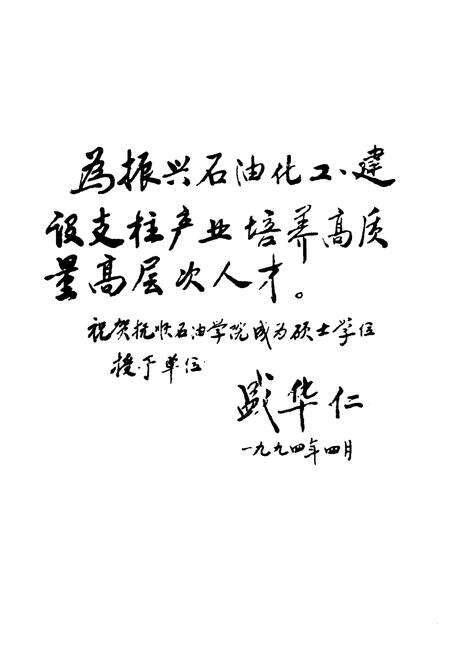 为振兴石油化工、建
设支柱产业培养高质
量高层次人才。
祝贺抚顺石油学院成为硕士学位
授予单位
盛华仁
一九九四年四月